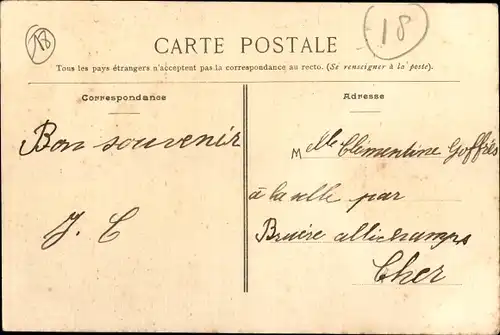 18
18
CARTE POSTALE
Tous les pays étrangers n'acceptent pas la correspondance au recto. (Se renseigner à la poste).
Correspondance
Adresse
Bon souvenir
J. C
Mlle Clementine Goffres
à la selle par
Bruère allichamps
Cher